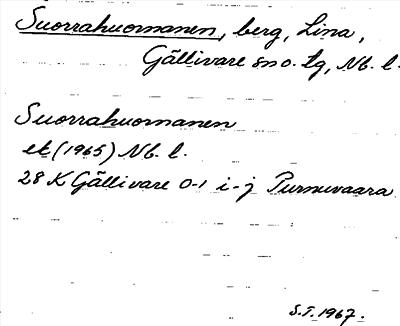 Suorrahuornanen, berg, Lina,
Gällivare sn o. tg, Nb. l.
Suorrahuornanen
ek (1965) Nb. l.
28 K Gällivare 0-1 i-j Purnuvaara
S.T. 1967.